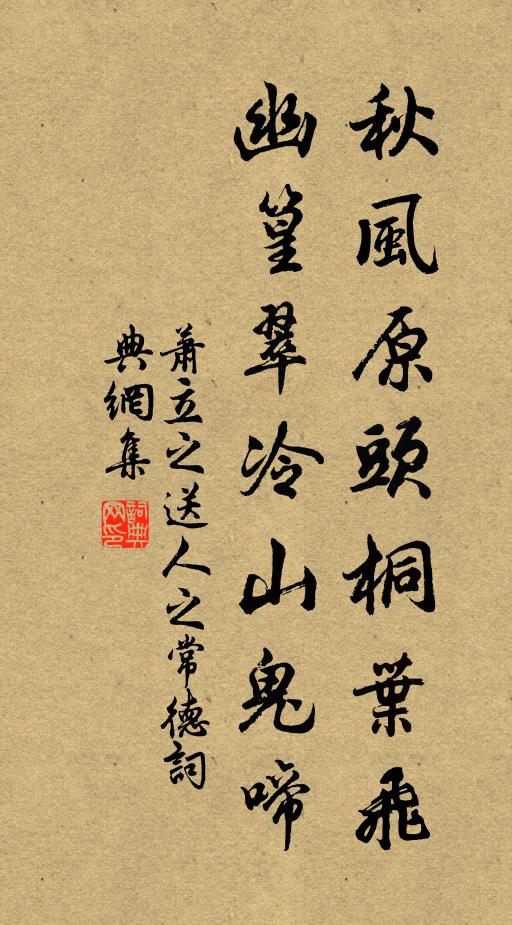 秋風原頭桐葉飛
幽篁翠冷山鬼啼
蕭立之送人之常德詞
典網集
詞典網印